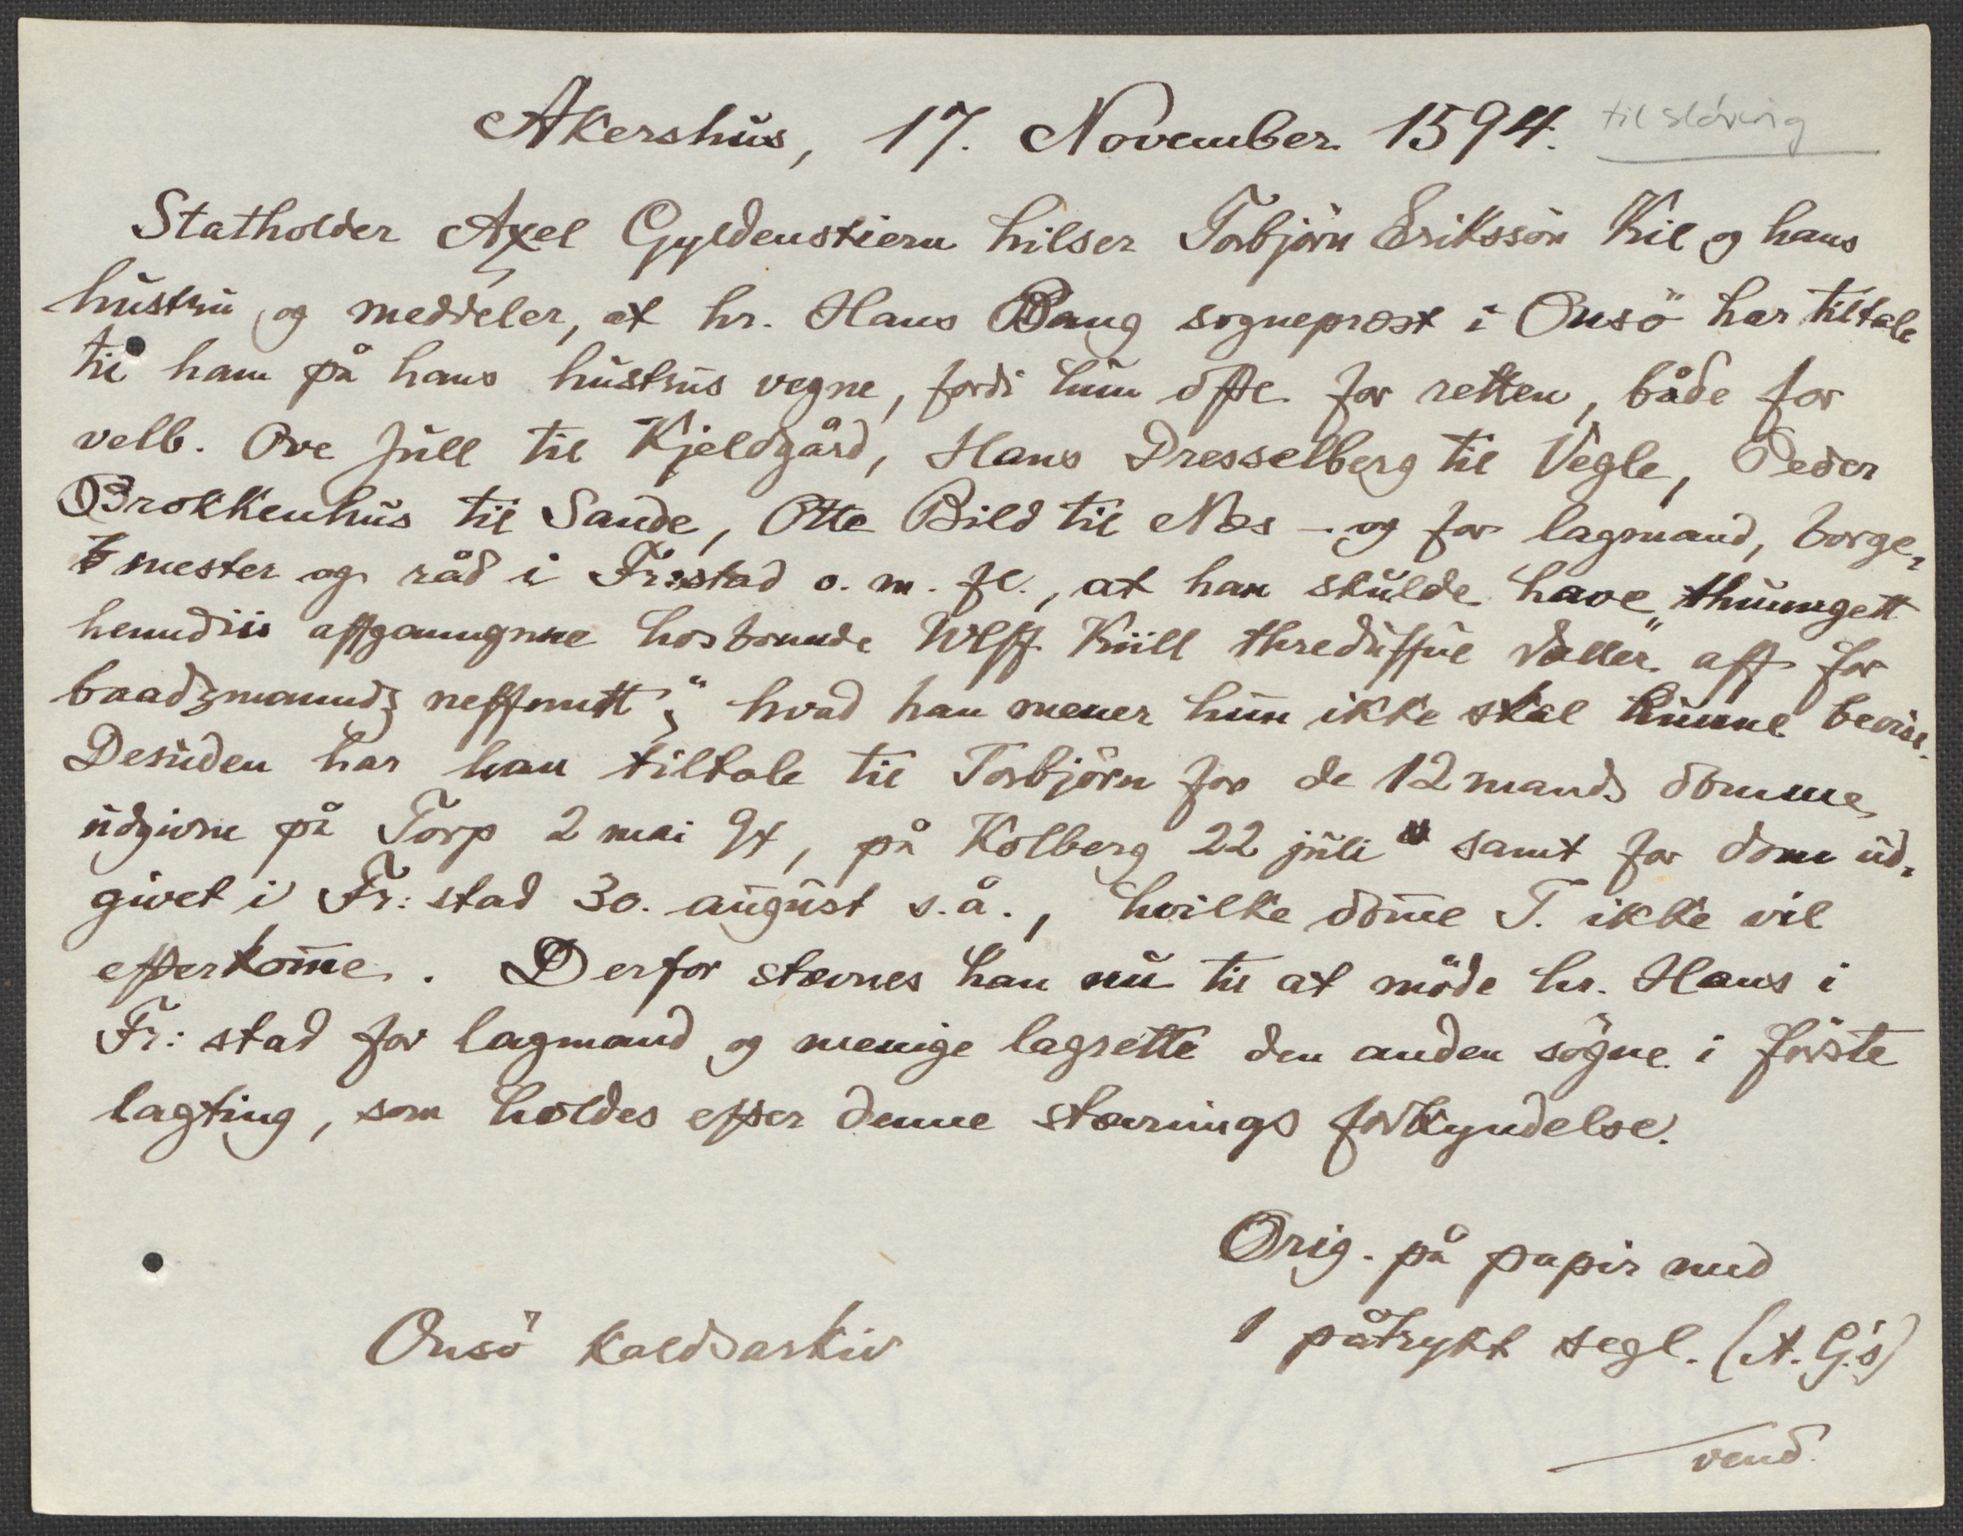 Akershus, 17. November 1594. til sløring
Statholder Axel Gyldenstiern hilser Torbjörn Erikssön Kil og hans
hustru og meddeler, at hr. Hans Bang sogneprest i Onsö har tiltale
til ham på hans hustrus vegne, fordi hun ofte for retten, både for
velb. Ove Jull til Kjeldgård, Hans Dresselberg til Vegle, Peder
Brokkenhus til Sande, Otte Bild til Næs – og for lagmand, borge-
mester og råd i Fr:stad o. m. fl., at han skulde have "thuunngett
henndiis affganngnne hosbonnde Wlff Kiill thredüffue daller aff for
baadzmanndz neffnntt", hvad han mener hun ikke skal kunne bevise.
Desuden har han tiltale til Torbjörn for de 12 mands domme
udgivne på Torp 2 mai 94, på Kolberg 22 juli " samt for dom ud-
givet i Fr: stad 30. august s. å., hvilke dom̅e T. ikke vil
efterkom̅e. Derfor stævnes han nu til at möde hr. Hans i
Fr: stad for lagmand og menige lagrette den anden sögne i förste
lagting, som holdes efter denne stævnings forkyndelse.
Orig. på papir med
Onsö kaldsarkiv 1 påtrykt segl. (A. G.'s)
vend.